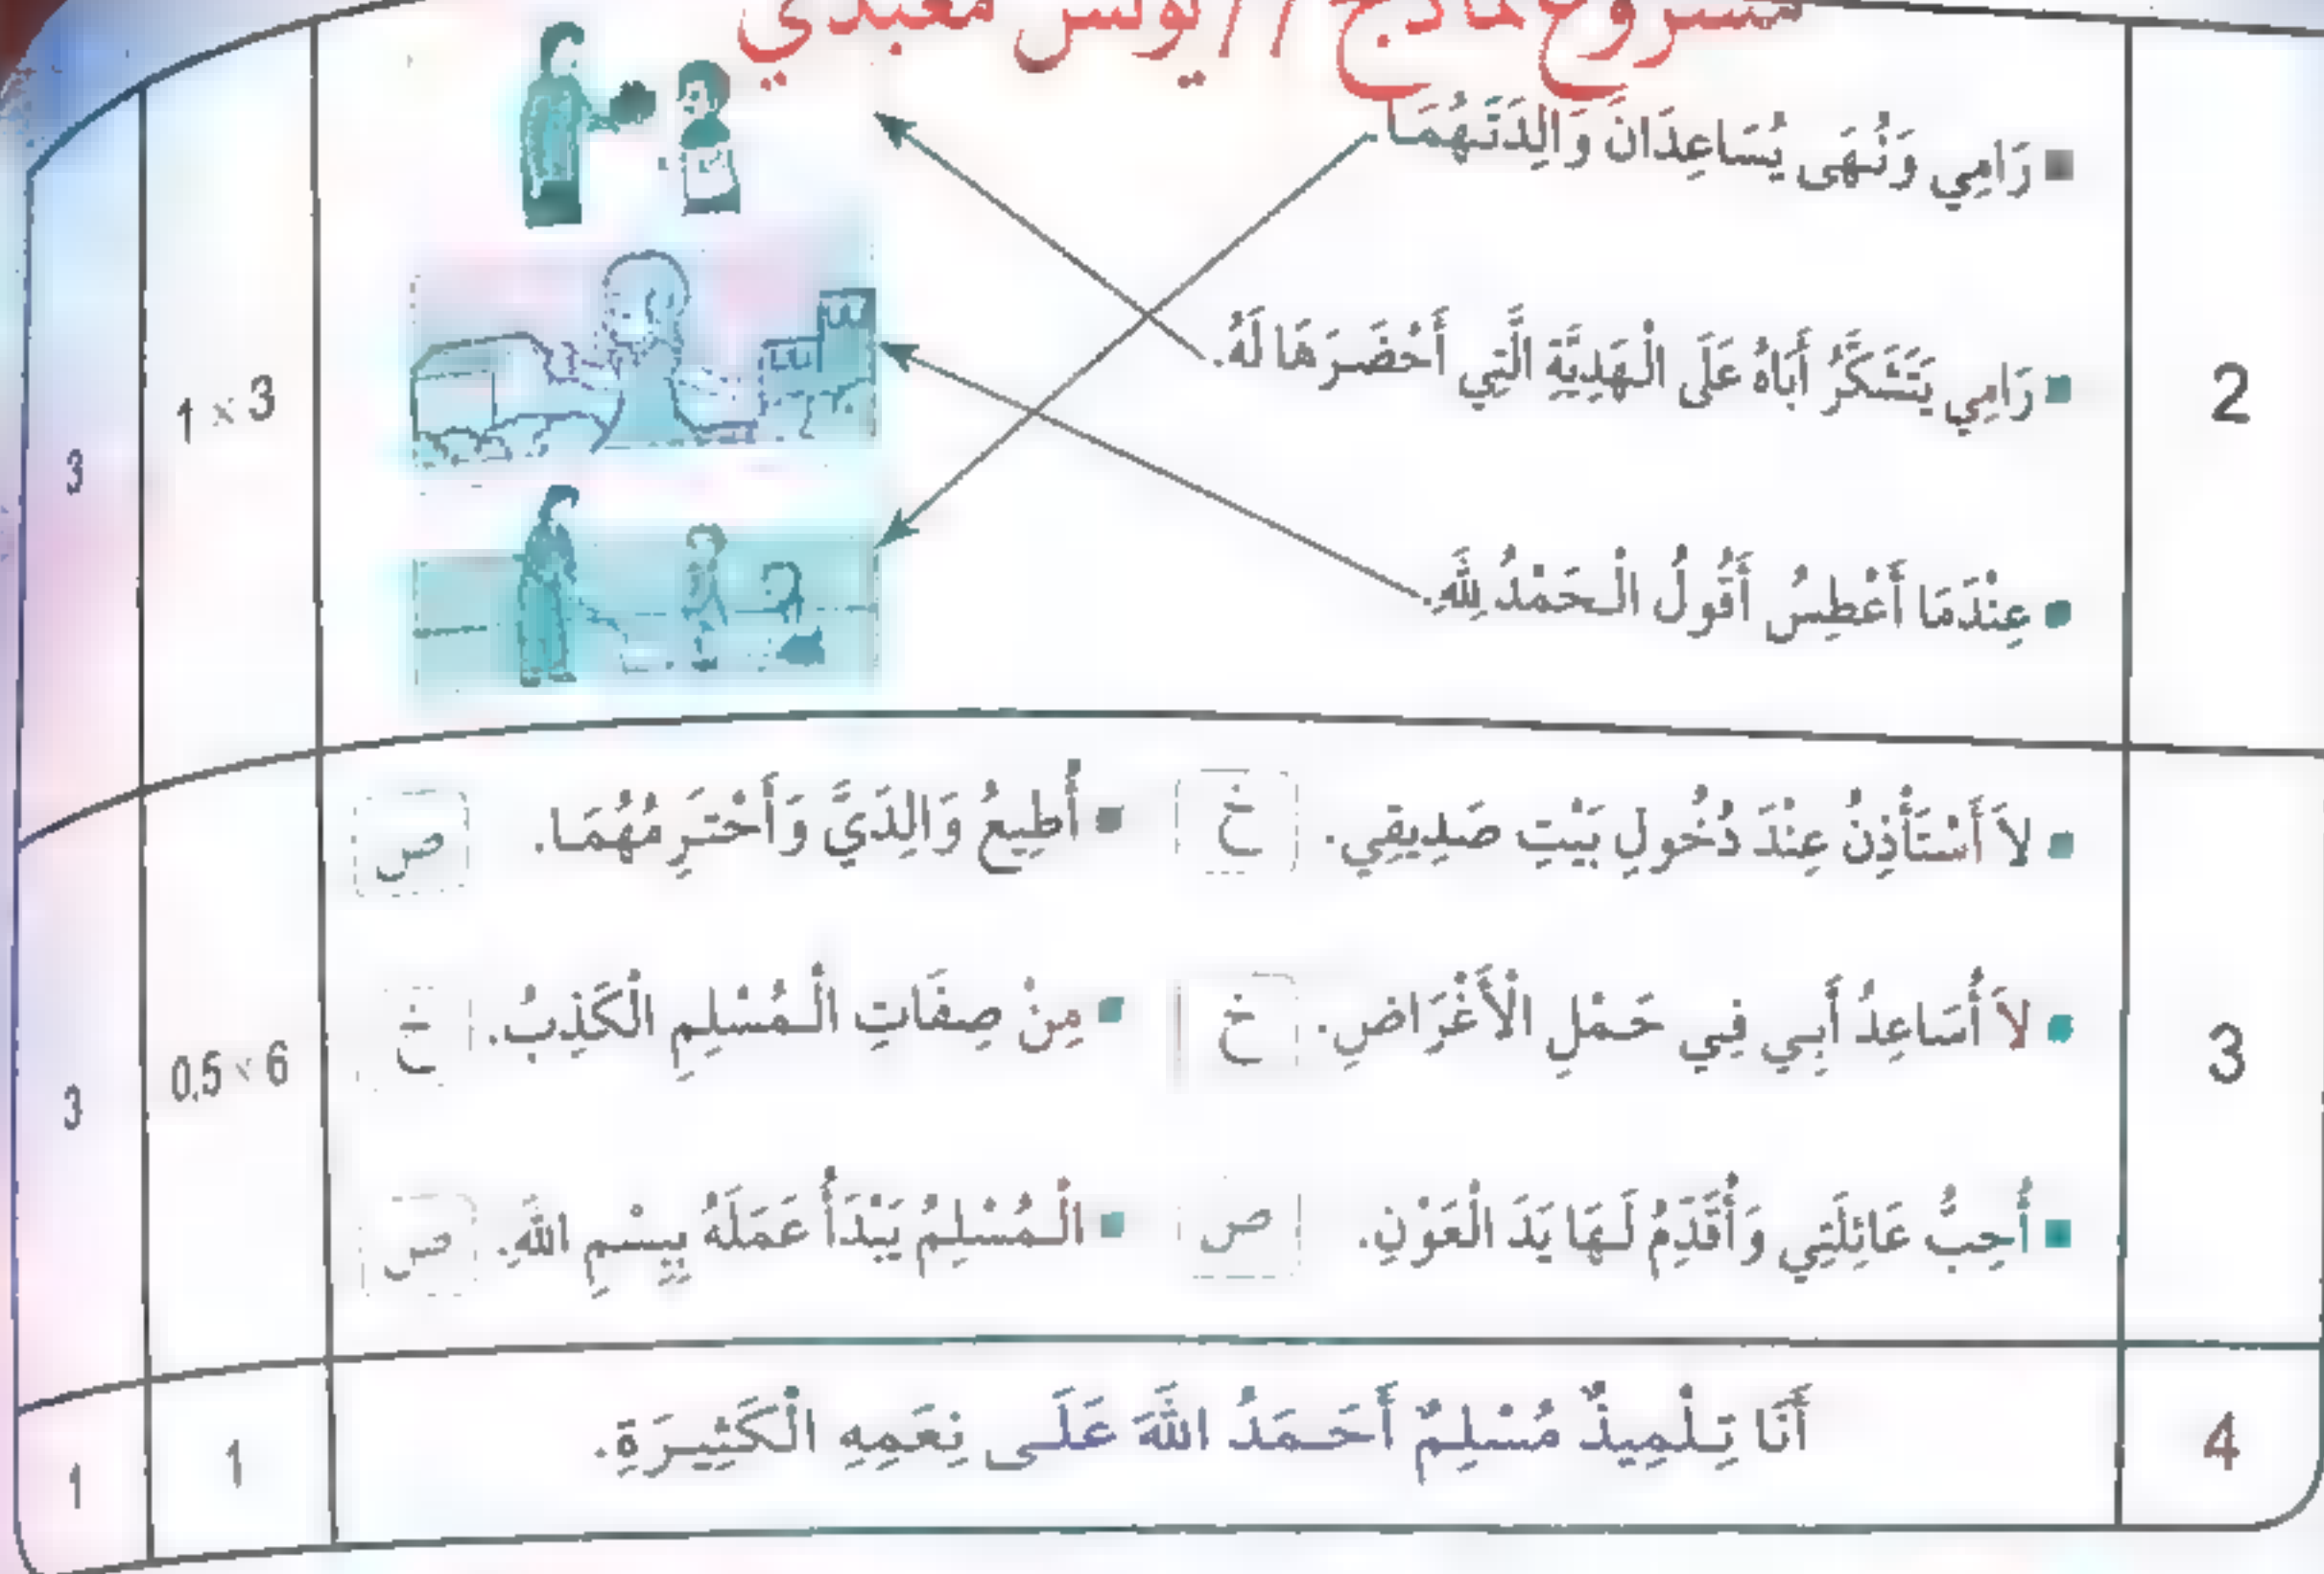 مشروع نماذج // يونس معبدي
2
▪ رَامِي وَنُهَى يُسَاعِدَانَ وَالِدَتَهُمَا.
▪ رَامِي يَتَشَكَّرُ أَبَاهُ عَلَى الْهَدِيَّةِ الَّتِي أَحْضَرَهَا لَهُ.
▪ عِنْدَمَا أَعْطِسُ أَقُولُ الْحَمْدُ لِلَّهِ.
1 × 3
3
3
▪ لاَ أَسْتَأْذِنُ عِنْدَ دُخُولِ بَيْتِ صَدِيقِي. خ ▪ أُطِيعُ وَالِدَيَّ وَأَحْتَرِمُهُمَا. ص
▪ لاَ أُسَاعِدُ أَبِي فِي حَمْلِ الْأَغْرَاضِ. خ ▪ مِنْ صِفَاتِ الْمُسْلِمِ الْكَذِبُ. خ
▪ أُحِبُّ عَائِلَتِي وَأُقَدِّمُ لَهَا يَدَ الْعَوْنِ. ص ▪ الْمُسْلِمُ يَبْدَأُ عَمَلَهُ بِبِسْمِ اللهِ. ص
0.5 × 6
3
4
أَنَا تِلْمِيذٌ مُسْلِمٌ أَحَمَدُ اللهَ عَلَى نِعَمِهِ الْكَثِيرَةِ.
1
1